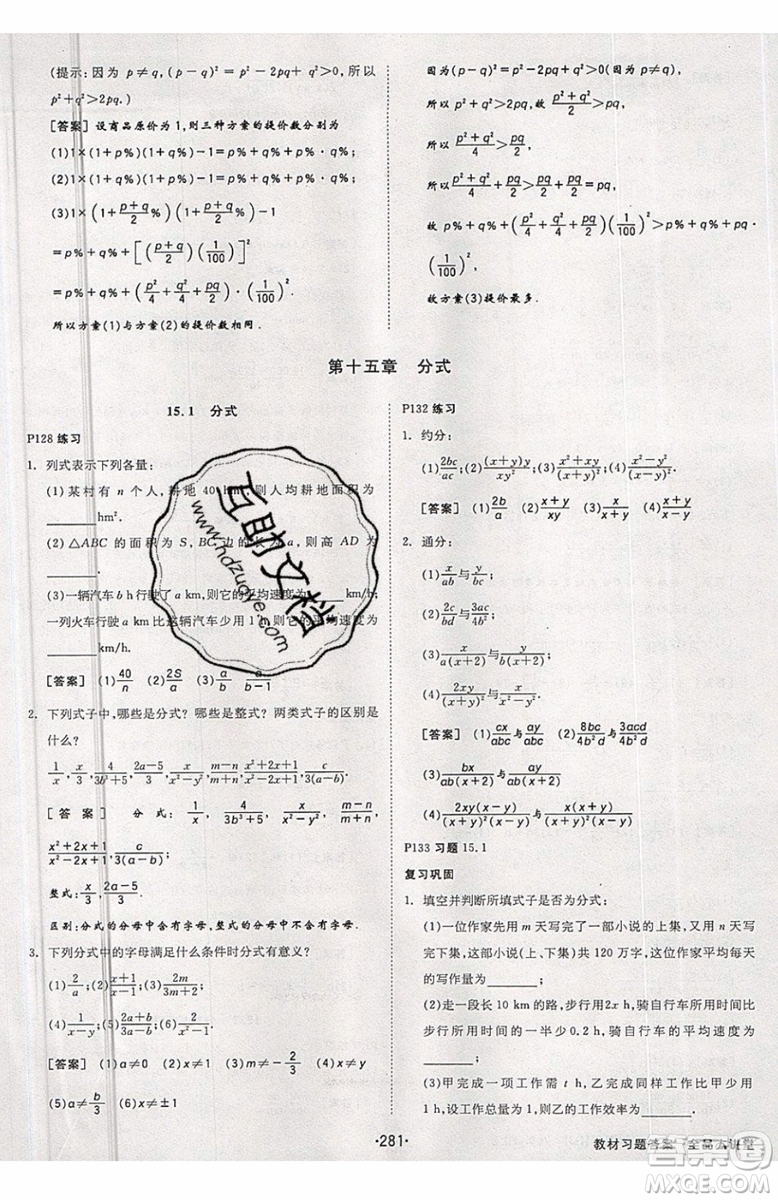 (提示:因为 p≠q,(p－q)²＝p²－2pq＋q²＞0,所以
p²＋q²＞2pq.)
[答案] 设商品原价为1,则三种方案的提价数分别为
(1)1×(1＋p%)(1＋q%)－1＝p%＋q%＋p%·q%;
(2)1×(1＋q%)(1＋p%)－1＝p%＋q%＋p%·q%;
(3)1×(1＋(p＋q)/2 %)(1＋(p＋q)/2 %)－1
＝p%＋q%＋[((p＋q)/2)(1/100)]²
＝p%＋q%＋(p²/4＋q²/4＋pq/2)(1/100)².
所以方案(1)与方案(2)的提价数相同.
因为(p－q)²＝p²－2pq＋q²＞0(因为 p≠q)
所以 p²＋q²＞2pq, 故 (p²＋q²)/2＞pq.
所以 (p²＋q²)/4＞pq/2.
所以 p²/4＋q²/4＋pq/2＞pq.
故 p%＋q%＋(p²/4＋q²/4＋pq/2)(1/100)²＞p%＋q%＋pq·
(1/100)².
故方案(3)提价最多.
第十五章 分式
15.1 分式
P128 练习
1. 列式表示下列各量:
(1)某村有 n 个人,耕地 40 hm²,则人均耕地面积为
________hm².
(2)△ABC 的面积为 S,BC 边的长为 a,则高 AD 为
________.
(3)一辆汽车 b h 行驶了 a km,则它的平均速度为________km/h;
一列火车行驶 a km 比这辆汽车少用 1 h,则它的平均速度为
________km/h.
[答案] (1)40/n (2)2S/a (3)a/b a/(b－1)
2. 下列式子中,哪些是分式?哪些是整式?两类式子的区别是
什么?
1/x,x/3,4/(3b³＋5),(2a－5)/3,x/(x²－y²),(m－n)/(m＋n),(x²＋2x＋1)/(x²－2x＋1),c/(3(a－b)).
[答案] 分式:1/x,4/(3b³＋5),x/(x²－y²),(m－n)/(m＋n),
(x²＋2x＋1)/(x²－2x＋1),c/(3(a－b))
整式:x/3,(2a－5)/3.
区别:分式的分母中含有字母,整式的分母中不含有字母.
3. 下列分式中的字母满足什么条件时分式有意义?
(1)2/a;(2)(x＋1)/(x－1);(3)2m/(3m＋2);
(4)1/(x－y);(5)(2a＋b)/(3a－b);(6)2/(x²－1).
[答案] (1)a≠0 (2)x≠1 (3)m≠－2/3 (4)x≠y
(5)a≠b/3 (6)x≠±1
P132 练习
1. 约分:
(1)2bc/ac;(2)(x＋y)y/xy²;(3)(x²＋xy)/(x＋y)²;(4)(x²－y²)/(x－y)².
[答案] (1)2b/a (2)(x＋y)/xy (3)x/(x＋y) (4)(x＋y)/(x－y)
2. 通分:
(1)x/ab与y/bc;
(2)2c/bd与3ac/4b²;
(3)x/(a(x＋2))与y/(b(x＋2));
(4)2xy/(x＋y)²与x/(x²－y²).
[答案] (1)cx/abc与ay/abc (2)8bc/4b²d与3acd/4b²d
(3)bx/(ab(x＋2))与ay/(ab(x＋2))
(4)2xy(x－y)/((x＋y)²(x－y))与x(x＋y)/((x＋y)²(x－y))
P133 习题 15.1
复习巩固
1. 填空并判断所填式子是否为分式:
(1)一位作家先用 m 天写完了一部小说的上集,又用 n 天写
完下集,这部小说(上、下集)共 120 万字,这位作家平均每天
的写作量为________;
(2)走一段长 10 km 的路,步行用 2x h,骑自行车所用时间比
步行所用时间的一半少0.2 h,骑自行车的平均速度为
________;
(3)甲完成一项工作需 t h,乙完成同样工作比甲少用
1 h,设工作总量为 1,则乙的工作效率为________.
·281·
教材习题答案 全品大讲堂
互助文档
www.hdzuoye.com
作业精灵